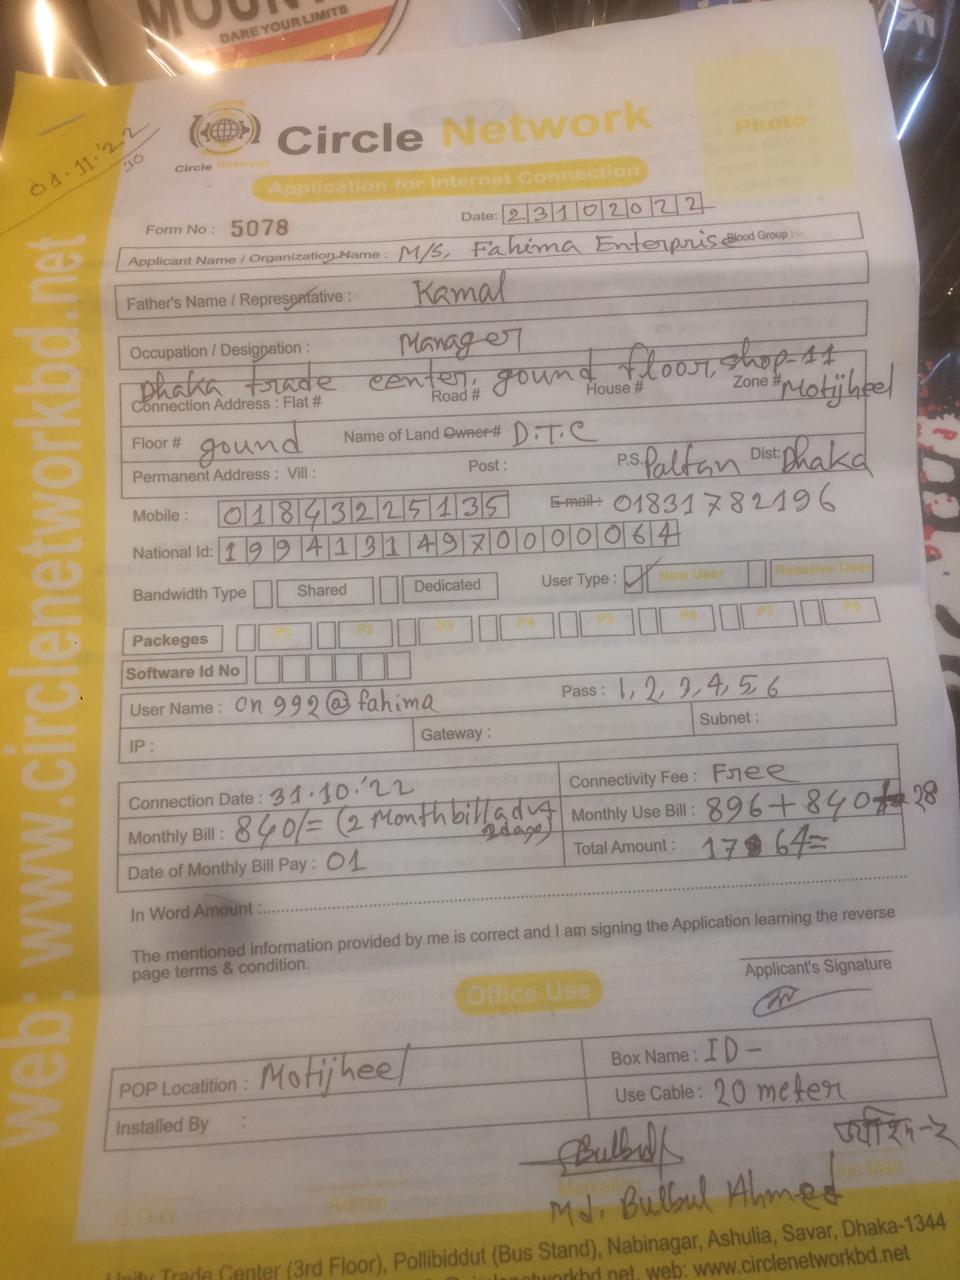 MOUNT
DARE YOUR LIMITS
01.11.'22
Circle Network
Circle Network
Photo
Application for Internet Connection
Form No : 5078
Date: 23102022
Applicant Name / Organization Name : M/S, Fahima Enterprise Blood Group :
Father's Name / Representative : Kamal
Occupation / Designation : Manager
Dhaka trade center, gound floor, shop-11
Connection Address : Flat # Road # House # Zone # Motijheel
Floor # gound Name of Land Owner# D.T.C
Permanent Address : Vill : Post : P.S. Paltan Dist: Dhaka
Mobile : 01843225135 E-mail : 01831782196
National Id: 19941314970000064
Bandwidth Type Shared Dedicated User Type : New User Reactive User
Packeges P1 P2 P3 P4 P5 P6 P7 P8
Software Id No
User Name : cn992@fahima Pass : 1,2,3,4,5,6
IP : Gateway : Subnet :
Connection Date : 31.10.'22 Connectivity Fee : Free
Monthly Bill : 840/= (2 Month bill adv+ 2days) Monthly Use Bill : 896+840+28
Date of Monthly Bill Pay : 01 Total Amount : 1764=
In Word Amount :
The mentioned information provided by me is correct and I am signing the Application learning the reverse
page terms & condition.
Applicant's Signature
Office Use
POP Locatition : Motijheel Box Name : ID-
Installed By : Use Cable : 20 meter
Bulbul
Admin Marketing
Md. Bulbul Ahmed
Unity Trade Center (3rd Floor), Pollibiddut (Bus Stand), Nabinagar, Ashulia, Savar, Dhaka-1344
@circlenetworkbd.net, web: www.circlenetworkbd.net
web: www.circlenetworkbd.net